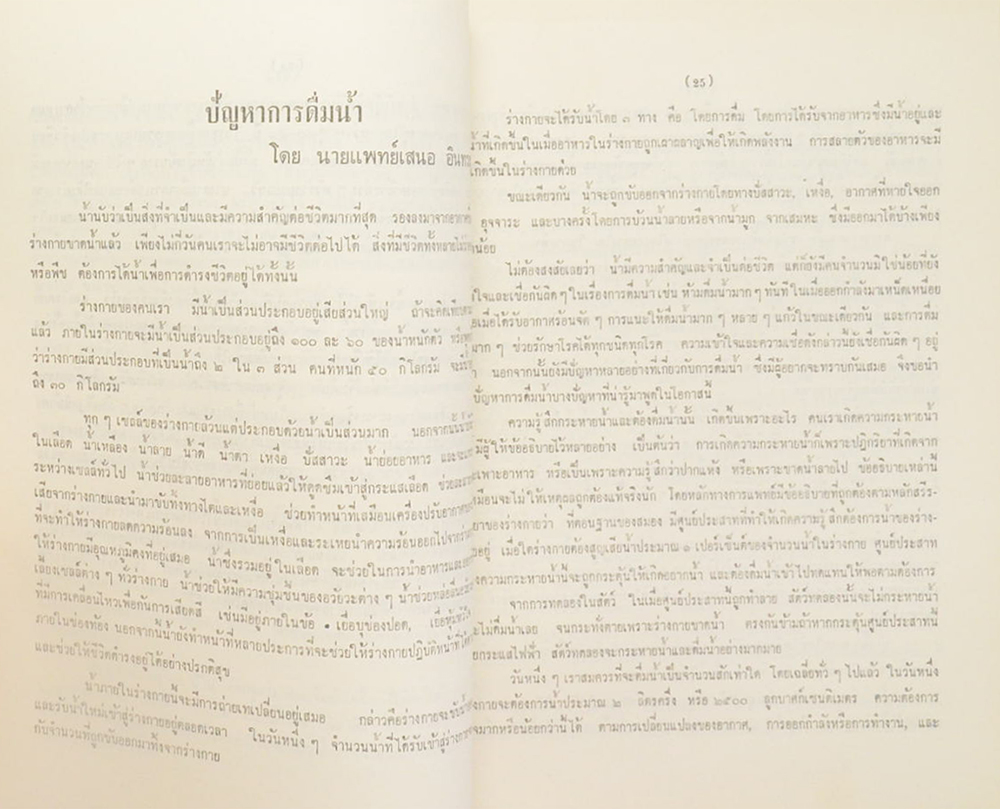 ปัญหาการดื่มน้ำ
โดย นายแพทย์เสนอ อินทร
น้ำนับว่าเป็นสิ่งที่จำเป็นและมีความสำคัญต่อชีวิตมากที่สุด รองลงมาจากอากาศ
ร่างกายขาดน้ำแล้ว เพียงไม่กี่วันคนเราจะไม่อาจมีชีวิตต่อไปได้ สิ่งที่มีชีวิตทั้งหลาย
หรือพืช ต้องการได้น้ำเพื่อการดำรงชีวิตอยู่ได้ทั้งนั้น
ร่างกายของคนเรา มีน้ำเป็นส่วนประกอบอยู่เสียส่วนใหญ่ ถ้าจะคิดเทียบ
แล้ว ภายในร่างกายจะมีน้ำเป็นส่วนประกอบอยู่ถึง ๑๐๐ ละ ๖๐ ของน้ำหนักตัว หรือ
ว่าร่างกายมีส่วนประกอบที่เป็นน้ำถึง ๒ ใน ๓ ส่วน คนที่หนัก ๕๐ กิโลกรัม จะมี
ถึง ๓๐ กิโลกรัม
ทุก ๆ เซลล์ของร่างกายล้วนแต่ประกอบด้วยน้ำเป็นส่วนมาก นอกจากนั้น
ในเลือด น้ำเหลือง น้ำลาย น้ำดี น้ำตา เหงื่อ ปัสสาวะ น้ำย่อยอาหาร และ
ระหว่างเซลล์ทั่วไป น้ำช่วยละลายอาหารที่ย่อยแล้วให้ดูดซึมเข้าสู่กระแสเลือด ช่วยละลาย
เสียจากร่างกายและนำมาขับทิ้งทางไตและเหงื่อ ช่วยทำหน้าที่เสมือนเครื่องปรับอากาศ
ที่จะทำให้ร่างกายลดความร้อนลง จากการเป็นเหงื่อและระเหยนำความร้อนออกไปจาก
ให้ร่างกายมีอุณหภูมิคงที่อยู่เสมอ น้ำซึ่งรวมอยู่ในเลือด จะช่วยในการนำอาหารและ
เลี้ยงเซลล์ต่าง ๆ ทั่วร่างกาย น้ำช่วยให้มีความชุ่มชื้นของอวัยวะต่าง ๆ น้ำช่วยหล่อลื่น
ที่มีการเคลื่อนไหวเพื่อกันการเสียดสี เช่นมีอยู่ภายในข้อ • เยื่อบุช่องปอด, เยื่อหุ้มหัวใจ
ภายในช่องท้อง นอกจากนี้น้ำยังทำหน้าที่หลายประการที่จะช่วยให้ร่างกายปฏิบัติหน้าที่ได้
และช่วยให้ชีวิตดำรงอยู่ได้อย่างปรกติสุข
น้ำภายในร่างกายนี้จะมีการถ่ายเทเปลี่ยนอยู่เสมอ กล่าวคือร่างกายจะขับ
และรับน้ำใหม่เข้าสู่ร่างกายอยู่ตลอดเวลา ในวันหนึ่ง ๆ จำนวนน้ำที่ได้รับเข้าสู่ร่างกาย
กับจำนวนที่ถูกขับออกมาทิ้งจากร่างกาย
(25)
ร่างกายจะได้รับน้ำโดย ๓ ทาง คือ โดยการดื่ม โดยการได้รับจากอาหารซึ่งมีน้ำอยู่และ
น้ำที่เกิดขึ้นในเมื่ออาหารในร่างกายถูกเผาผลาญเพื่อให้เกิดพลังงาน การสลายตัวของอาหารจะมี
เกิดขึ้นในร่างกายด้วย
ขณะเดียวกัน น้ำจะถูกขับออกจากร่างกายโดยทางปัสสาวะ, เหงื่อ, อากาศที่หายใจออก
อุจจาระ และบางครั้งโดยการบ้วนน้ำลายหรือจากน้ำมูก จากเสมหะ ซึ่งมีออกมาได้บ้างเพียง
น้อย
ไม่ต้องสงสัยเลยว่า น้ำมีความสำคัญและจำเป็นต่อชีวิต แต่ก็ยังมีคนจำนวนมิใช่น้อยที่ยัง
ใจและเชื่อกันผิด ๆ ในเรื่องการดื่มน้ำ เช่น ห้ามดื่มน้ำมาก ๆ ทันที ในเมื่อออกกำลังมาเหน็ดเหนื่อย
เมื่อได้รับอากาศร้อนจัด ๆ การแนะให้ดื่มน้ำมาก ๆ หลาย ๆ แก้วในขณะเดียวกัน และการดื่ม
มาก ๆ ช่วยรักษาโรคได้ทุกชนิดทุกโรค ความเข้าใจและความเชื่อดังกล่าวนี้ยังเชื่อกันผิด ๆ อยู่
นอกจากนั้นยังมีปัญหาหลายอย่างที่เกี่ยวกับการดื่มน้ำ ซึ่งมีผู้อยากจะทราบกันเสมอ จึงขอนำ
ปัญหาการดื่มน้ำบางปัญหาที่น่ารู้มาพูดในโอกาสนี้
ความรู้สึกกระหายน้ำและต้องดื่มน้ำนั้น เกิดขึ้นเพราะอะไร คนเราเกิดความกระหายน้ำ
มีผู้ให้ข้ออธิบายไว้หลายอย่าง เป็นต้นว่า การเกิดความกระหายน้ำก็เพราะปฏิกริยาที่เกิดจาก
เพาะอาหาร หรือเป็นเพราะความรู้สึกว่าปากแห้ง หรือเพราะขาดน้ำลายไป ข้ออธิบายเหล่านี้
เหมือนจะไม่ให้เหตุผลถูกต้องแท้จริงนัก โดยหลักทางการแพทย์มีข้ออธิบายที่ถูกต้องตามหลักสรีร-
ยาของร่างกายว่า ที่ตอนฐานของสมอง มีศูนย์ประสาทที่ทำให้เกิดความรู้สึกต้องการน้ำของร่าง-
อยู่ เมื่อใดร่างกายต้องสูญเสียน้ำประมาณ ๑ เปอร์เซ็นต์ของจำนวนน้ำในร่างกาย ศูนย์ประสาท
งความกระหายน้ำนี้จะถูกกระตุ้นให้เกิดอยากน้ำ และต้องดื่มน้ำเข้าไปทดแทนให้พอตามต้องการ
จากการทดลองในสัตว์ ในเมื่อศูนย์ประสาทนี้ถูกทำลาย สัตว์ทดลองนั้นจะไม่กระหายน้ำ
ะไม่ดื่มน้ำเลย จนกระทั่งตายเพราะร่างกายขาดน้ำ ตรงกันข้ามถ้าหากกระตุ้นศูนย์ประสาทนี้
ยกระแสไฟฟ้า สัตว์ทดลองจะกระหายน้ำและดื่มน้ำอย่างมากมาย
วันหนึ่ง ๆ เราสมควรที่จะดื่มน้ำเป็นจำนวนสักเท่าใด โดยเฉลี่ยทั่ว ๆ ไปแล้ว ในวันหนึ่ง
งกายจะต้องการน้ำประมาณ ๒ ลิตรครึ่ง หรือ ๒๕๐๐ ลูกบาศก์เซนติเมตร ความต้องการ
จมากหรือน้อยกว่านี้ได้ ตามการเปลี่ยนแปลงของอากาศ, การออกกำลังหรือการทำงาน, และ